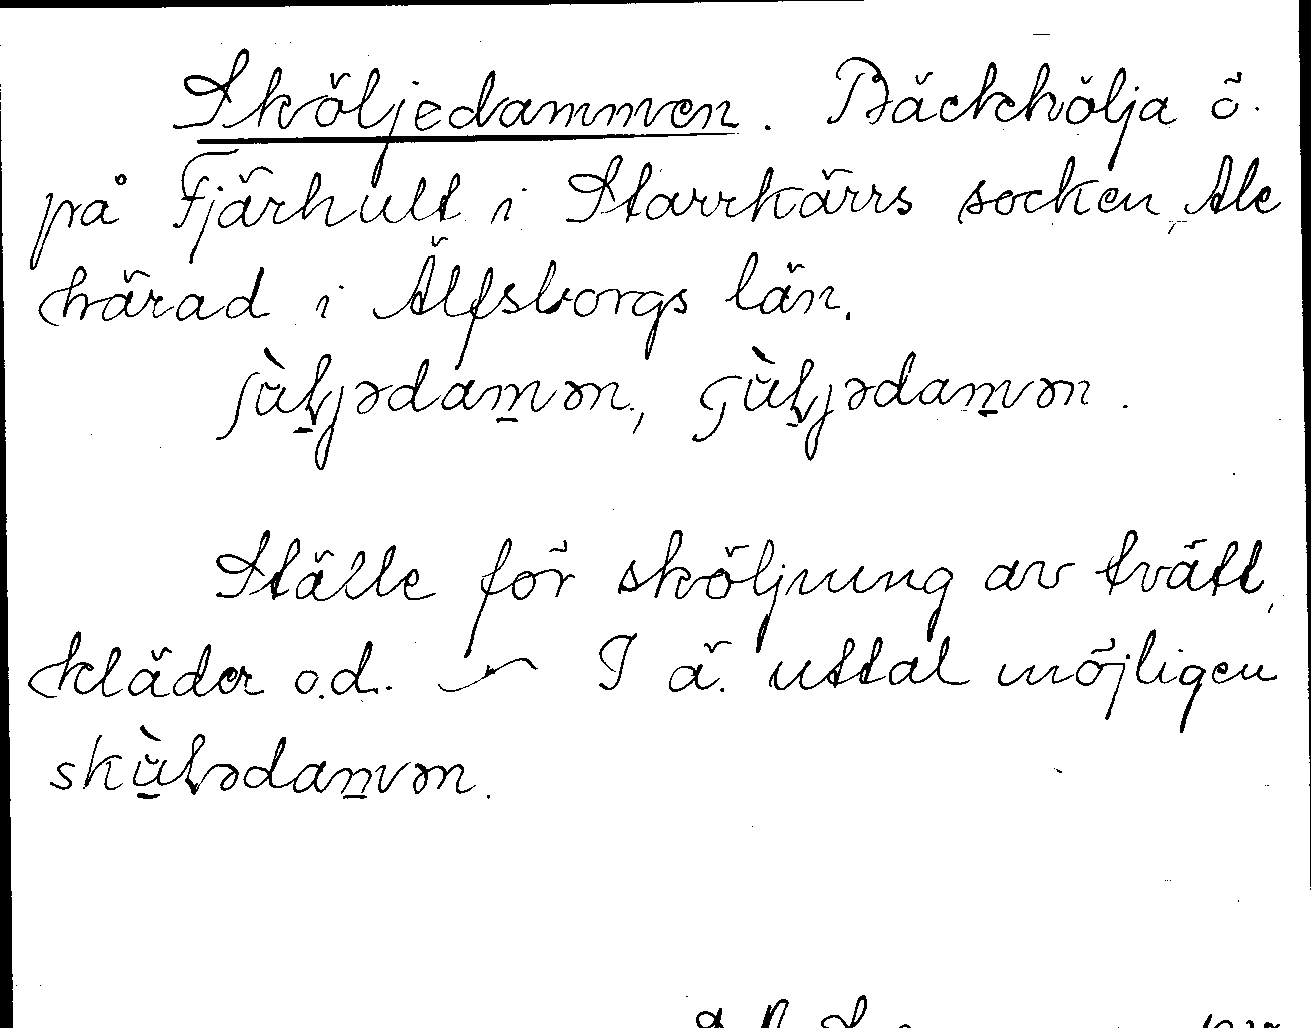 Sköljedammen. Bäckhölja ö.
på Fjärhult i Starrkärrs socken, Ale
härad i Älfsborgs län.
Ställe för sköljning av tvätt,
kläder o.d. — I ä. uttal möjligen